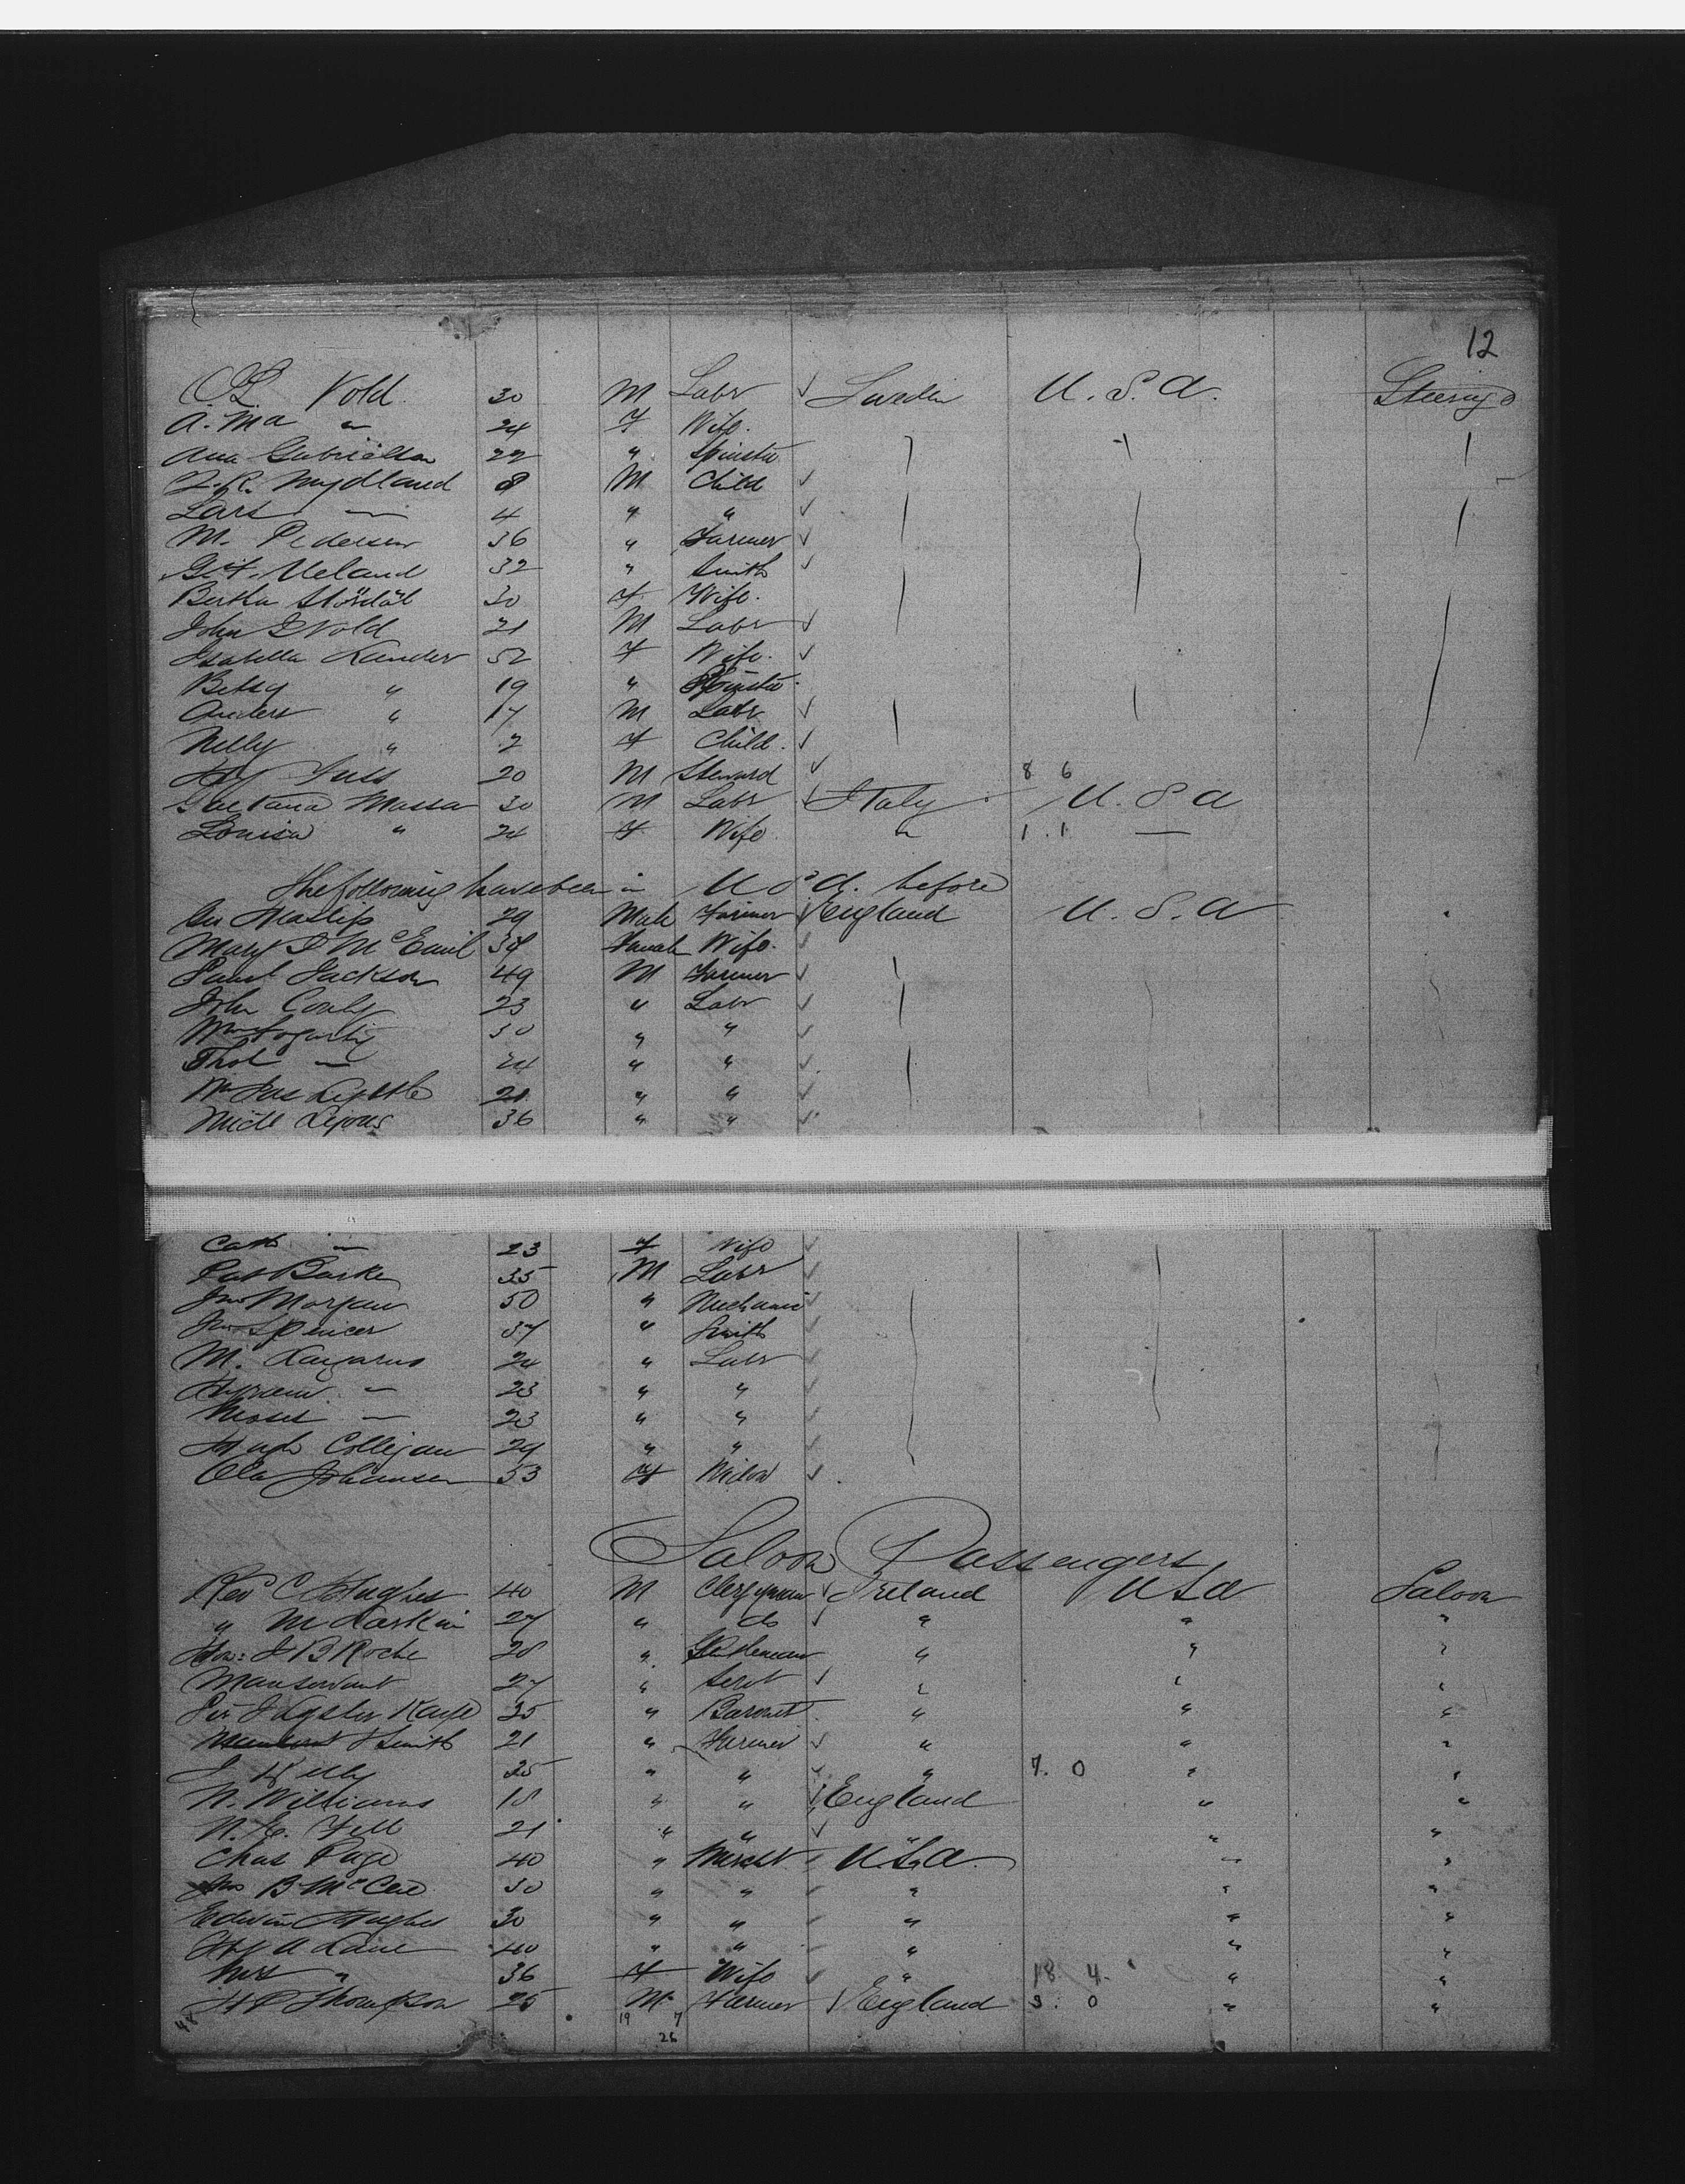 12
Vold 30 M Labr ✓ Sweden U.S.A. Steerage
A. Ma " 24 F Wife.
Ana Gabrielsen 22 " Spinster
Mydland 8 M Child ✓
Lars — 4 " " ✓
M. Pedersen 36 " Farmer ✓
Ueland 32 " Smith ✓
Bertha Stördal 30 F Wife.
John I Vold 21 M Labr ✓
Isabella Lander 52 F Wife. ✓
Betsy " 19 " Spinster.
Anders " 17 M Labr ✓
Nelly " 2 F Child. ✓
20 M Steward ✓ 8 6
Gaetana Massa 30 M Labr ✓ Italy U.S.A
Louisa " 24 F Wife " 1.1 —
The following have been in U S A. before
Geo 29 Male Farmer ✓ England U.S.A
Mary 34 Female Wife. ✓
Saml Jackson 49 M Farmer ✓
John 23 " Labr ✓
Wm Fogarty 30 " " ✓
Thos — 24 " " ✓
21 " " ✓
Michl Lyons 36 " " ✓
Cath " 23 F Wife ✓
Pat Burke 35 M Labr ✓
Jno Morgan 50 " Mechanic ✓
Jno Spencer 37 " Smith ✓
M. Lazarus 24 " Labr ✓
— 23 " " ✓
Moses — 23 " " ✓
Hugh Colligan 29 " " ✓
Ola Johansen 53 F Widow ✓
Saloon Passengers
Rev C Hughes 40 M Clergyman ✓ Ireland U S A Saloon
" M Larkin 27 " do ✓ " " "
Hon: J B Roche 28 " Gentleman " " "
Manservant 27 " Servt ✓ " " "
Sir J Lyster Kaye 25 " Baronet " " "
Smith 21 " Farmer ✓ " " "
J Kelly 25 " " ✓ " 7. 0 " "
W. Williams 18 " " ✓ England " "
Fell 21 " " ✓ " "
Chas Page 40 " Mercht ✓ U S A. " "
Jno B McCee 30 " " ✓ " " "
Edwin Hughes 30 " " ✓ " " "
Hy A Lane 40 " " ✓ " " "
Mrs " 36 F Wife ✓ " 18 4 " "
H P Thompson 25 M Farmer ✓ England 3. 0 " "
48 19 7
26